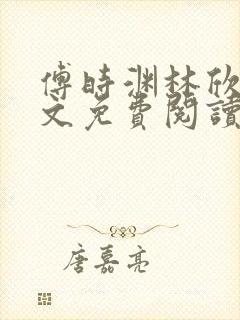 傅時渊林欣
文免費閱讀
唐嘉亮